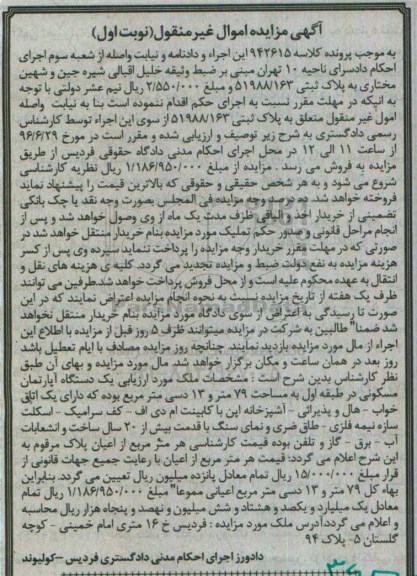 آگهی مزایده اموال غیر منقول (نوبت اول)
به موجب پرونده کلاسه ۹۴۲۶۱۵ این اجراء و دادنامه و نیابت واصله از شعبه سوم اجرای
احکام دادسرای ناحیه ۱۰ تهران مبنی بر ضبط وثیقه خلیل اقبالی شیره جین و شهین
مختاری به پلاک ثبتی ۵۱۹۸۸/۱۶۳ و مبلغ ۲/۵۵۰/۰۰۰ ریال نیم عشر دولتی با توجه
به اینکه در مهلت مقرر نسبت به اجرای حکم اقدام ننموده است بنا به نیابت واصله
اموال غیر منقول متعلق به پلاک ثبتی ۵۱۹۸۸/۱۶۳ از سوی این اجراء توسط کارشناس
رسمی دادگستری به شرح زیر توصیف و ارزیابی شده و مقرر است در مورخ ۹۶/۶/۲۹
از ساعت ۱۱ الی ۱۲ در محل اجرای احکام مدنی دادگاه حقوقی فردیس از طریق
مزایده به فروش می رسد . مزایده از مبلغ ۱/۱۸۶/۹۵۰/۰۰۰ ریال نظریه کارشناسی
شروع می شود و به هر شخص حقیقی و حقوقی که بالاترین قیمت را پیشنهاد نماید
فروخته خواهد شد. ده درصد وجه مزایده فی المجلس بصورت وجه نقد یا چک بانکی
تضمینی از خریدار اخذ و الباقی ظرف مدت یک ماه از وی وصول خواهد شد و پس از
انجام مراحل قانونی و صدور حکم تملیک مورد مزایده بنام خریدار منتقل خواهد شد در
صورتی که در مهلت مقرر خریدار وجه مزایده را پرداخت ننماید سپرده وی پس از کسر
هزینه مزایده به نفع دولت ضبط و مزایده تجدید می گردد. کلیه ی هزینه های نقل و
انتقال به عهده محکوم علیه است و از محل فروش پرداخت خواهد شد.طرفین می توانند
ظرف یک هفته از تاریخ مزایده نسبت به نحوه انجام مزایده اعتراض نمایند که در این
صورت تا رسیدگی به اعتراض از سوی دادگاه مورد مزایده بنام خریدار منتقل نخواهد
شد ضمنا" طالبین به شرکت در مزایده میتوانند ظرف ۵ روز قبل از مزایده با اطلاع این
اجراء از مال مورد مزایده بازدید نمایند. چنانچه روز مزایده مصادف با ایام تعطیل باشد
روز بعد در همان ساعت و مکان برگزار خواهد شد. مال مورد مزایده و بهای آن طبق
نظر کارشناس بدین شرح است : مشخصات ملک مورد ارزیابی یک دستگاه آپارتمان
مسکونی در طبقه اول به مساحت ۷۹ متر و ۱۳ دسی متر مربع بوده که دارای یک اتاق
خواب - هال و پذیرائی - آشپزخانه اپن با کابینت ام دی اف - کف سرامیک - اسکلت
سازه نیمه فلزی - طاق ضربی و نمای سنگ با قدمت بیش از ۲۰ سال ساخت و انشعابات
آب - برق - گاز و تلفن بوده قیمت کارشناسی هر متر مربع از اعیان پلاک مرقوم به
این شرح اعلام می گردد: قیمت هر متر مربع از اعیان با رعایت جمیع جهات قانونی از
قرار مبلغ ۱۵/۰۰۰/۰۰۰ ریال تمام معادل پانزده میلیون ریال تعیین می گردد. بنابراین
بهاء کل ۷۹ متر و ۱۳ دسی متر مربع اعیانی موما" مبلغ ۱/۱۸۶/۹۵۰/۰۰۰ ریال تمام
معادل یک میلیارد و یکصد و هشتاد و شش میلیون و نهصد و پنجاه هزار ریال محاسبه
و اعلام می گردد.آدرس ملک مورد مزایده : فردیس خ ۱۶ متری امام خمینی - کوچه
گلستان ۵- پلاک ۹۴
دادورز اجرای احکام مدنی دادگستری فردیس - کولیوند